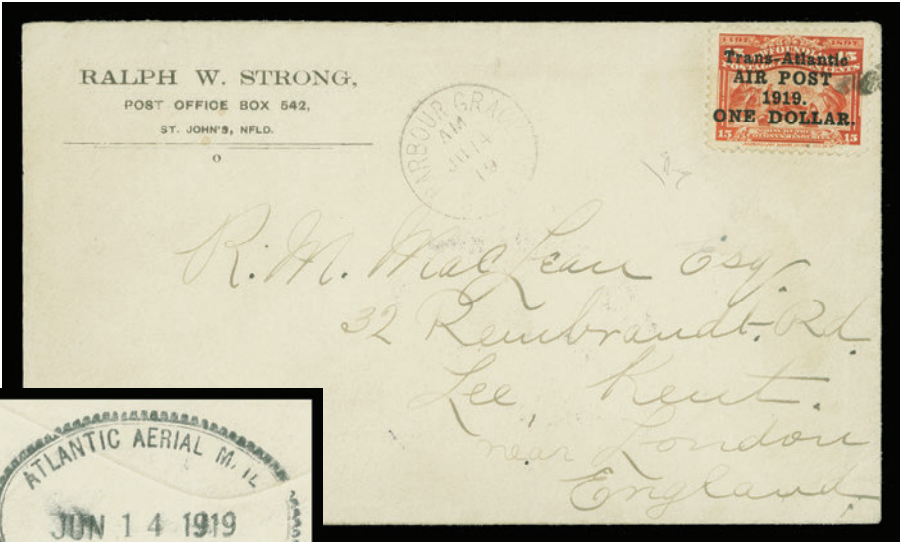 RALPH W. STRONG,
POST OFFICE BOX 542,
ST. JOHN'S, NFLD.
HARBOUR GRAC
AM
JU 14
19
Trans-Atlantic
AIR POST
1919.
ONE DOLLAR.
15 15
R. M. MacLean Esq.
32 Rembrandt Rd.
Lee, Kent.
near London
England
ATLANTIC AERIAL M
JUN 14 1919